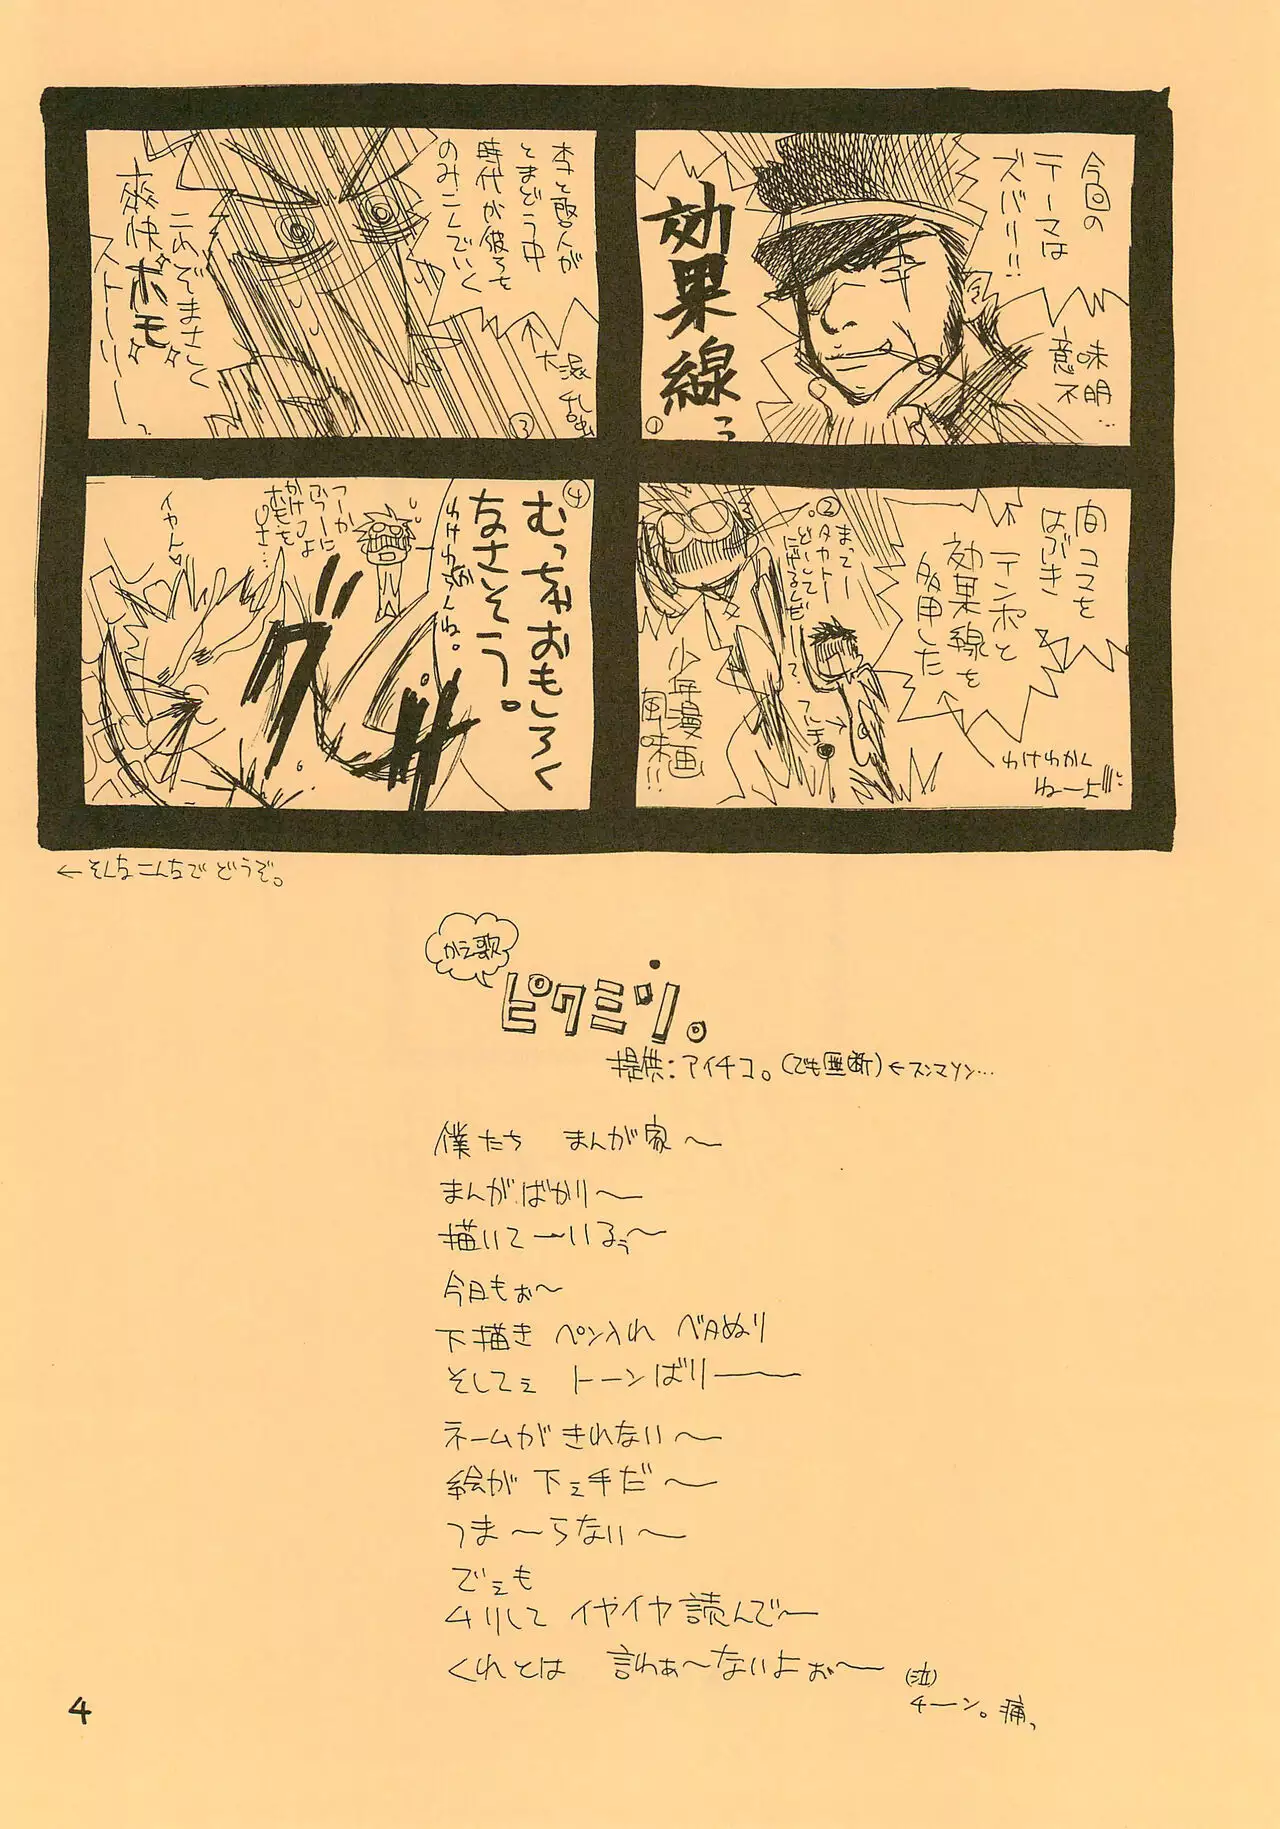 今回の
テーマは
ズバリ!!
効果線っ
意味
不明…
①
間コマを
はぶき
テンポと
効果線を
多用した
②
まってー
タカトー
どうして
にげるんだー
少年漫画
風味!!
わけわかく
ねーよ!!!
時代が彼らを
のみこんでいく
とまどう中
大混乱
これでまさしく
爽快ホモ
ストーリーっ
③
④
むっちゃおもしろく
なさそう。
わけわかんね。
つーか
ふつーに
かけってよ
ホモを
グサ
イヤん
←そんなこんなでどうぞ。
かえ歌
ピクミン。
提供:アイチコ。(でも無断)←スンマソン…
僕たち まんが家〜
まんがばかり〜
描いて―いるぅ〜
今日もぉ〜
下描き ペン入れ ベタぬり
そしてぇ トーンばりー
ネームがきれない〜
絵が 下ぇ手だ〜
つま〜らない〜
でぇも
ムリして イヤイヤ読んで〜
くれとは 言わぁ〜ないよぉ〜
(泣)
チーン。痛っ
4